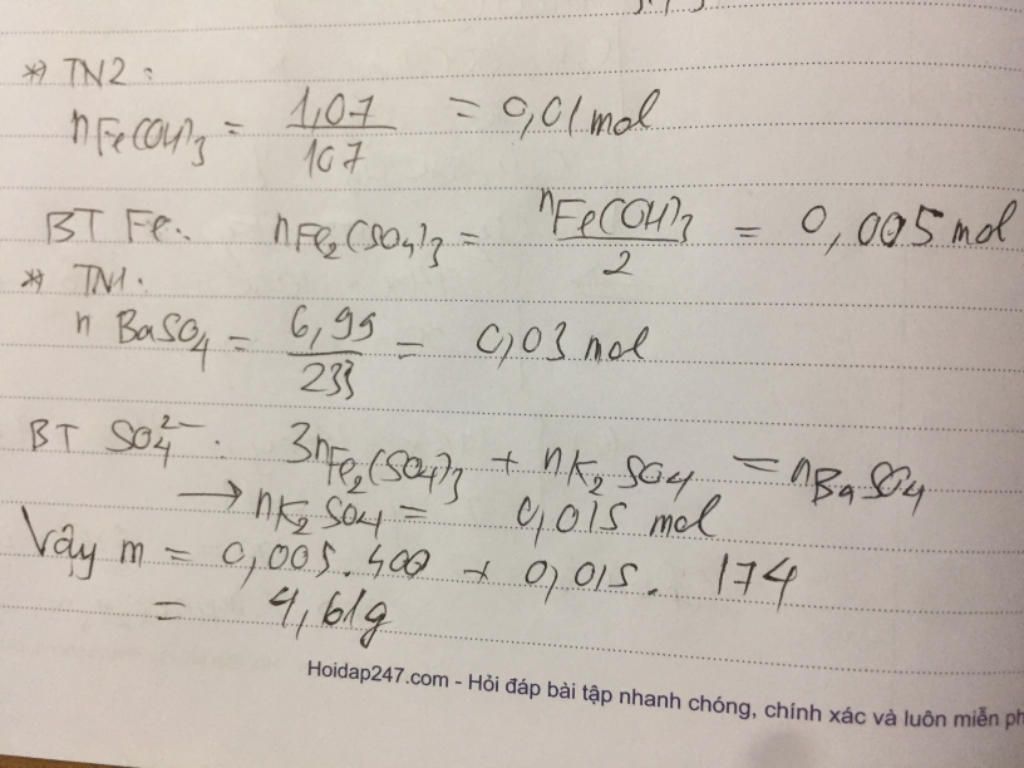 *) TN2:
nFe(OH)3 = 1,07 / 107 = 0,01 mol
BT Fe: nFe2(SO4)3 = nFe(OH)3 / 2 = 0,005 mol
*) TN1:
n BaSO4 = 6,99 / 233 = 0,03 mol
BT SO4^2-: 3nFe2(SO4)3 + nK2SO4 = nBaSO4
→ nK2SO4 = 0,015 mol
Vậy m = 0,005.400 + 0,015. 174
= 4,61g
Hoidap247.com - Hỏi đáp bài tập nhanh chóng, chính xác và luôn miễn ph